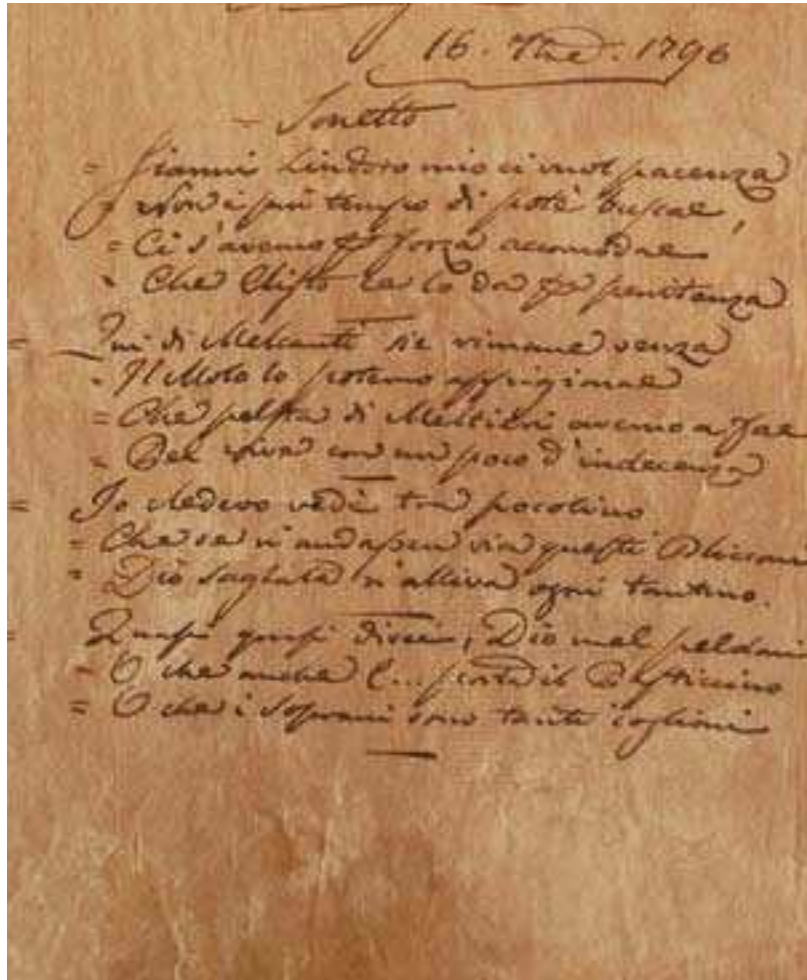 16. 7bre. 1796
- Sonetto
= Gianni Lindoro mio ci vuol pacenza
= Non è più tempo di potè buscae,
= Ci s'avemo p forza accomodae
- Che Clisto ce lo da p penitenza
= Qui di Melcanti se rimane senza
- Il Molo lo potemo appigionae
= Che di Mestieri avemo a fae
= con un poco d'indecenza
= Io cledevo vedè tra pocolino
= Che se n'andassen via questi
= Dio sagiata n'alliva ogni tantino.
= Quasi quasi direi, Dio mel peldoni
- O che anche C... porta il
= O che i Soprani sono tanti coglioni